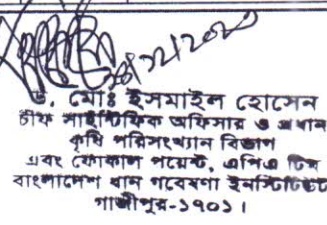 ০৪/১২/২০২০
ড. মোঃ ইসমাইল হোসেন
চীফ সাইন্টিফিক অফিসার ও প্রধান
কৃষি পরিসংখ্যান বিভাগ
এবং ফোকাল পয়েন্ট, এপিএ টিম
বাংলাদেশ ধান গবেষণা ইনস্টিটিউট
গাজীপুর-১৭০১।